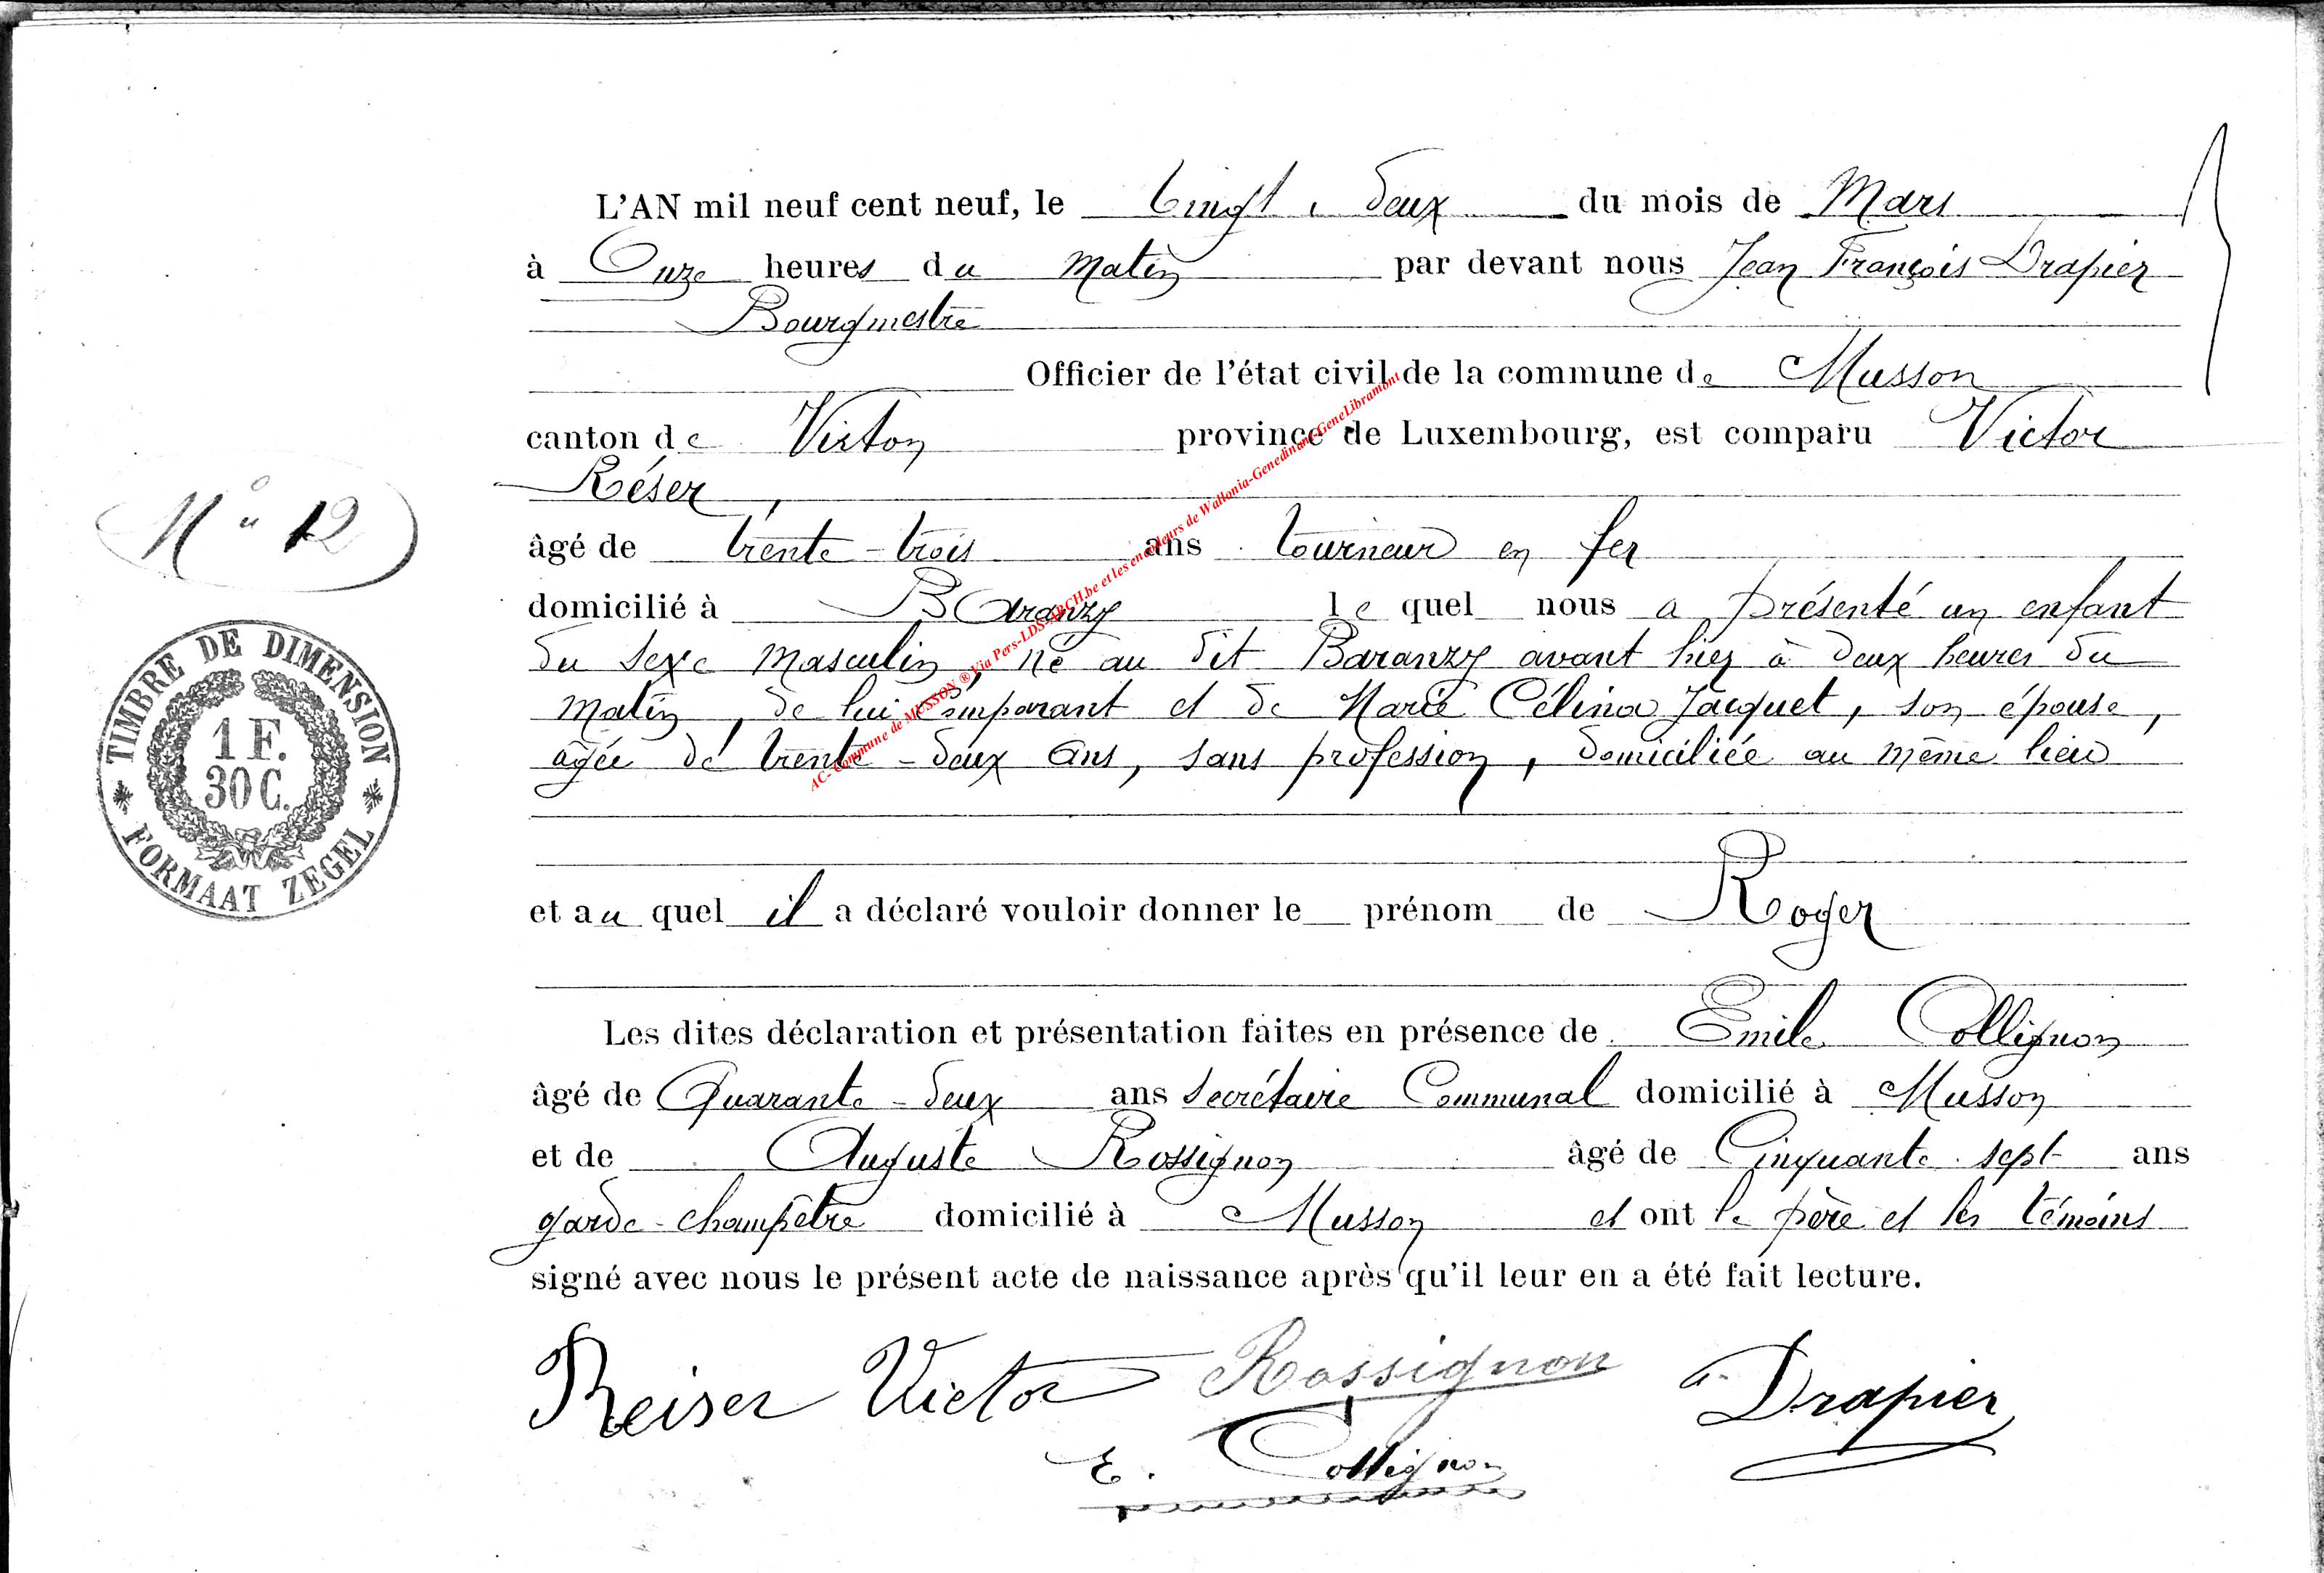 L'AN mil neuf cent neuf, le vingt-deux du mois de Mars
à Onze heures du matin par devant nous Jean François Drapier
Bourgmestre
Officier de l'état civil de la commune de Musson
canton de Virton province de Luxembourg, est comparu Victor
Réser,
N° 12
âgé de trente-trois ans tourneur en fer
domicilié à Baranzy lequel nous a présenté un enfant
du sexe masculin, né au dit Baranzy avant hier à deux heures du
matin, de lui comparant et de Marie Célina Jacquet, son épouse,
âgée de trente-deux ans, sans profession, domiciliée au même lieu
TIMBRE DE DIMENSION
1 F.
30 C.
FORMAAT ZEGEL
et auquel il a déclaré vouloir donner le prénom de Roger
Les dites déclaration et présentation faites en présence de Emile Collignon
âgé de Quarante-deux ans secrétaire Communal domicilié à Musson
et de Auguste Rossignon âgé de Cinquante-sept ans
garde-champêtre domicilié à Musson et ont le père et les témoins
signé avec nous le présent acte de naissance après qu'il leur en a été fait lecture.
Reiser Victor Rossignon Drapier
E. Collignon
AC- Commune de MUSSON ® Via Pers-LDS-ARCH.be et les encodeurs de Wallonia-Genedinant-GeneLibramont